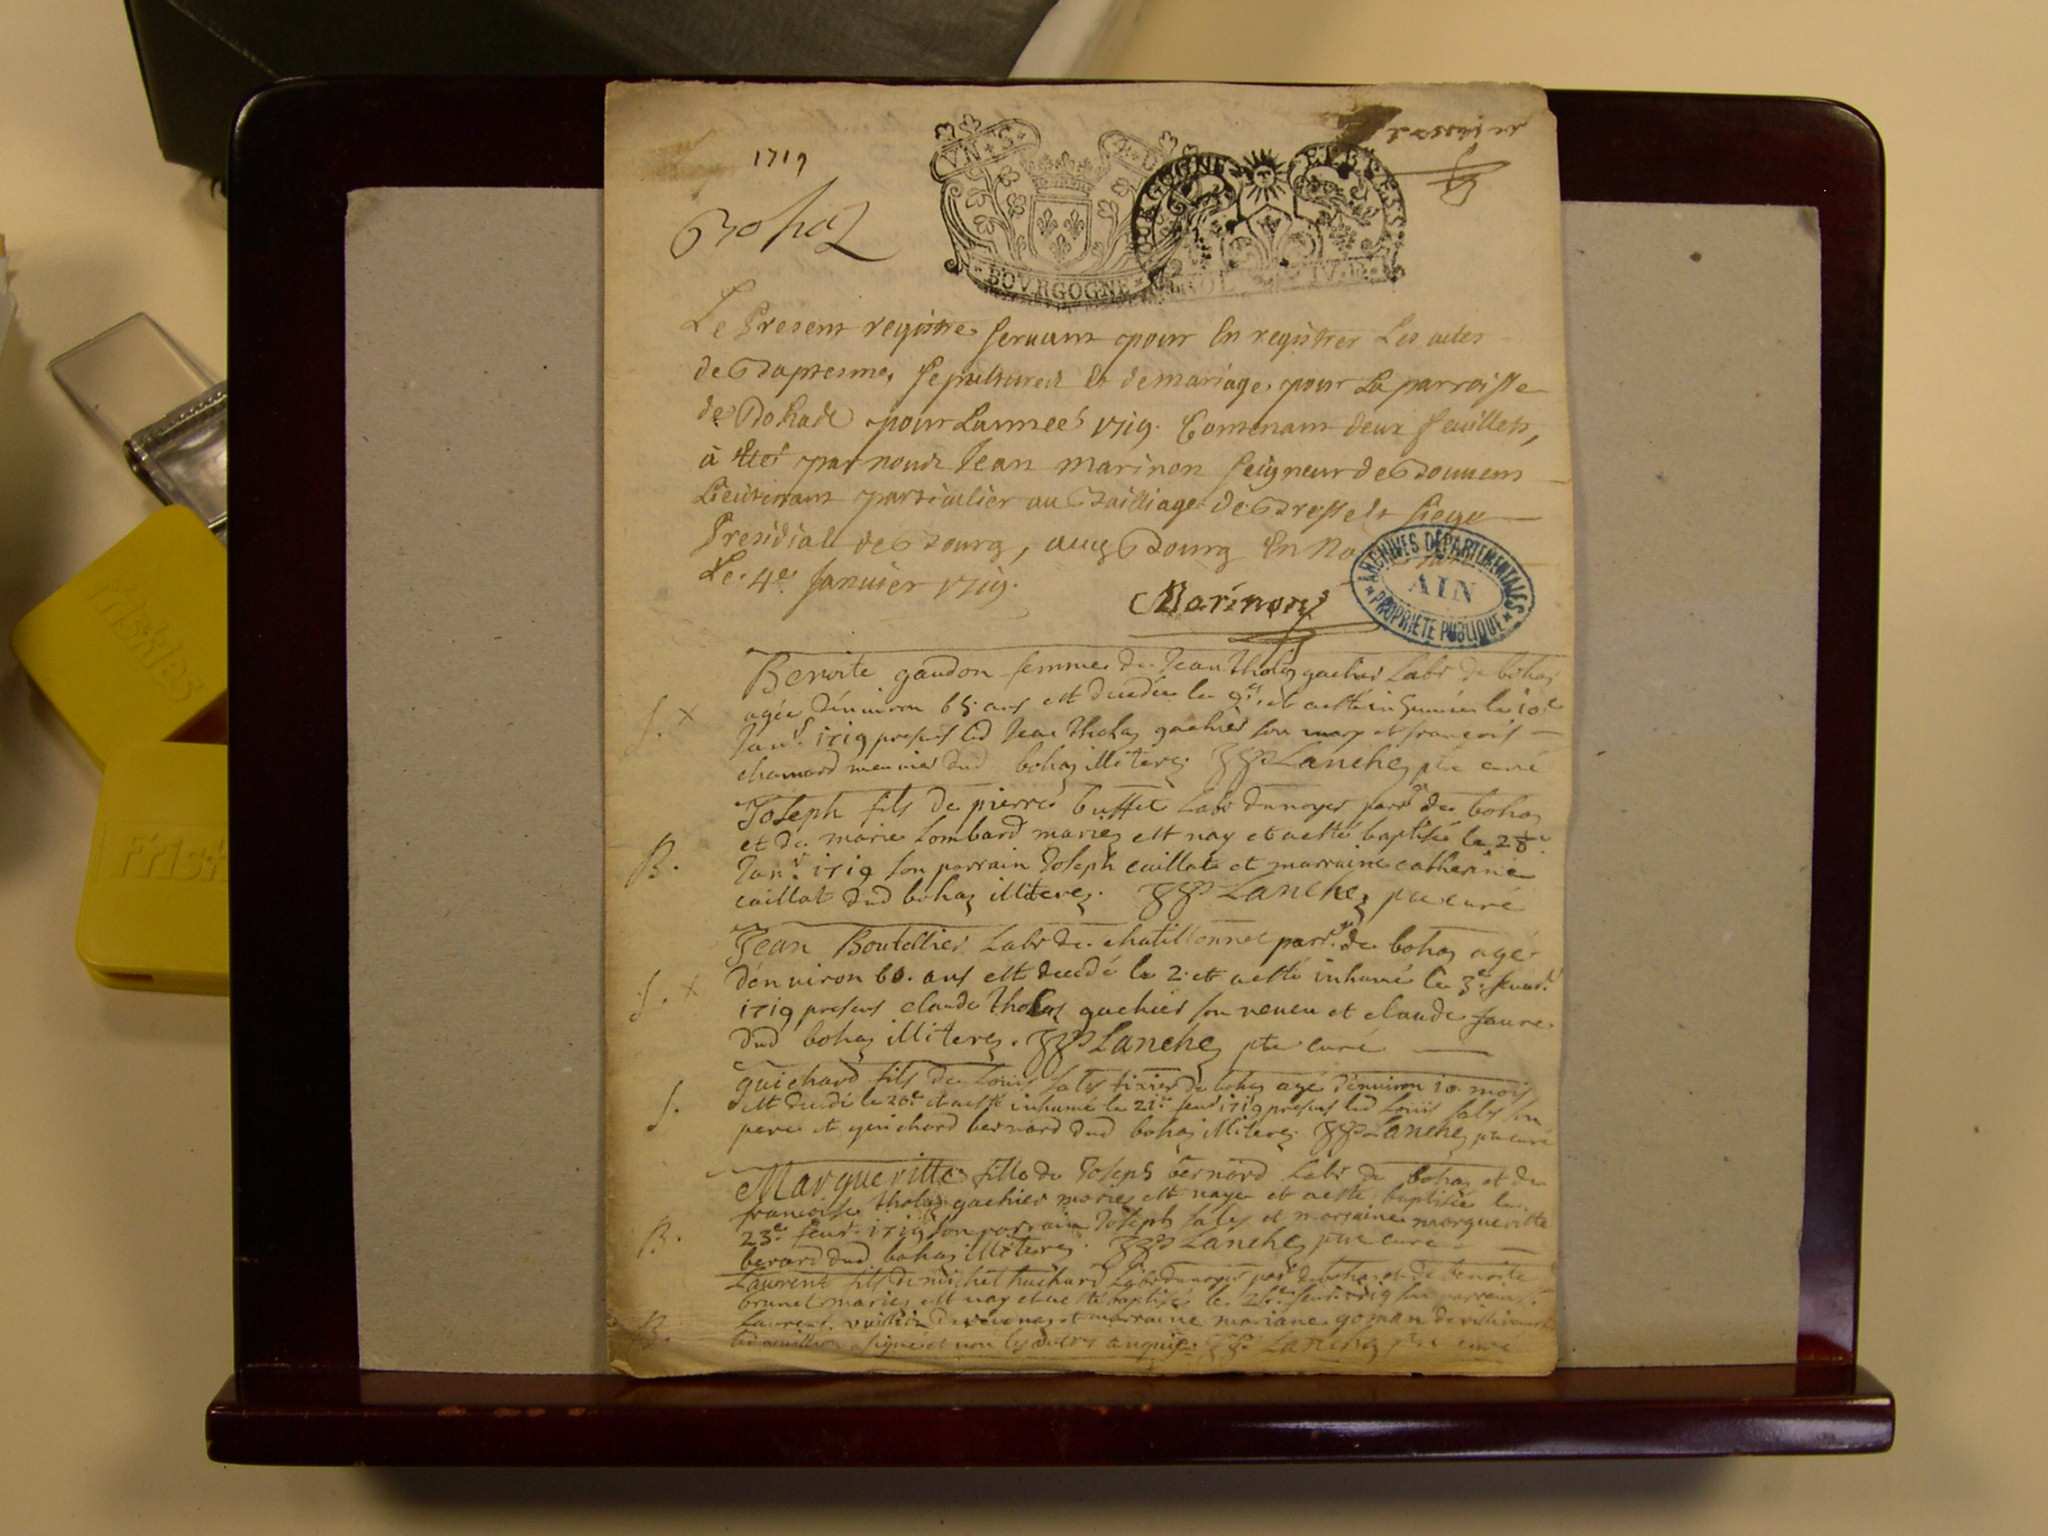 1719
Bohaz
VN · S
BOVRGOGNE
BOURGOGNE ET BRESSE
Le Present registre servant pour En registrer Les actes
de Baptesme, sepultures et de mariage, pour La parroisse
de Bohas pour Lannee 1719. Contenant deux feuillets,
à Été par nous Jean marinon seigneur de Bouuens
Lieutenant particulier au Bailliage de Bresse et siege
Presidial de Bourg, Bourg En
Le 4e Januier 1719.
Marinon
ARCHIVES DÉPARTEMENTALES
AIN
PROPRIÉTÉ PUBLIQUE
Benoite gaudon femme de Jean tholas gachier Labr de bohas
S. x agée dénuiron 65 ans est decedée le 9e et a esté inhumée le 10e
Janr 1719 presents led Jean tholas gachier son mary et françois
chamard meunier dud bohas illiterez JJP Lanchez ptre curé
Joseph fils de pierre buffet Labr dunoyer parr de bohas
et de marie Lombard mariez est nay et a esté baptisé le 28e
B. Janr 1719 son parrain Joseph caillat et marraine catherine
caillat dud bohas illiterez. JJP Lanchez ptre curé
Jean Boutellier Labr de chatillonnet parr de bohas agé
S. x dénuiron 60. ans est decedé le 2. et a esté inhumé le 3e feur
1719 presens claude tholas gachier son neueu et claude faure
dud bohas illiterez. JJP Lanchez ptre curé
guichard fils de Louis sales tixier de bohas agé dénuiron 10 mois
S. est decedé le 20e et a esté inhumé le 21e feur 1719 presens led Louis sales son
pere et guichard bernard dud bohas illiterez JJP Lanchez ptre curé
Margueritte fille de Joseph bernard Labr de bohas et de
françoise tholas gachier mariez est naye et a esté baptisée le
B. 23e feur 1719 son parrain Joseph sales et marraine margueritte
berard dud bohas illiterez. JJP Lanchez ptre curé
Laurent fils de michel huchard Labr dunoyer parr de bohas et de benoite
brunet mariez est nay et a esté baptisé le feur 1719 son parrain
B. Laurent et marraine mariane goman de
signé et non les autres enquis JJP Lanchez ptre curé
Friskies
Frisk